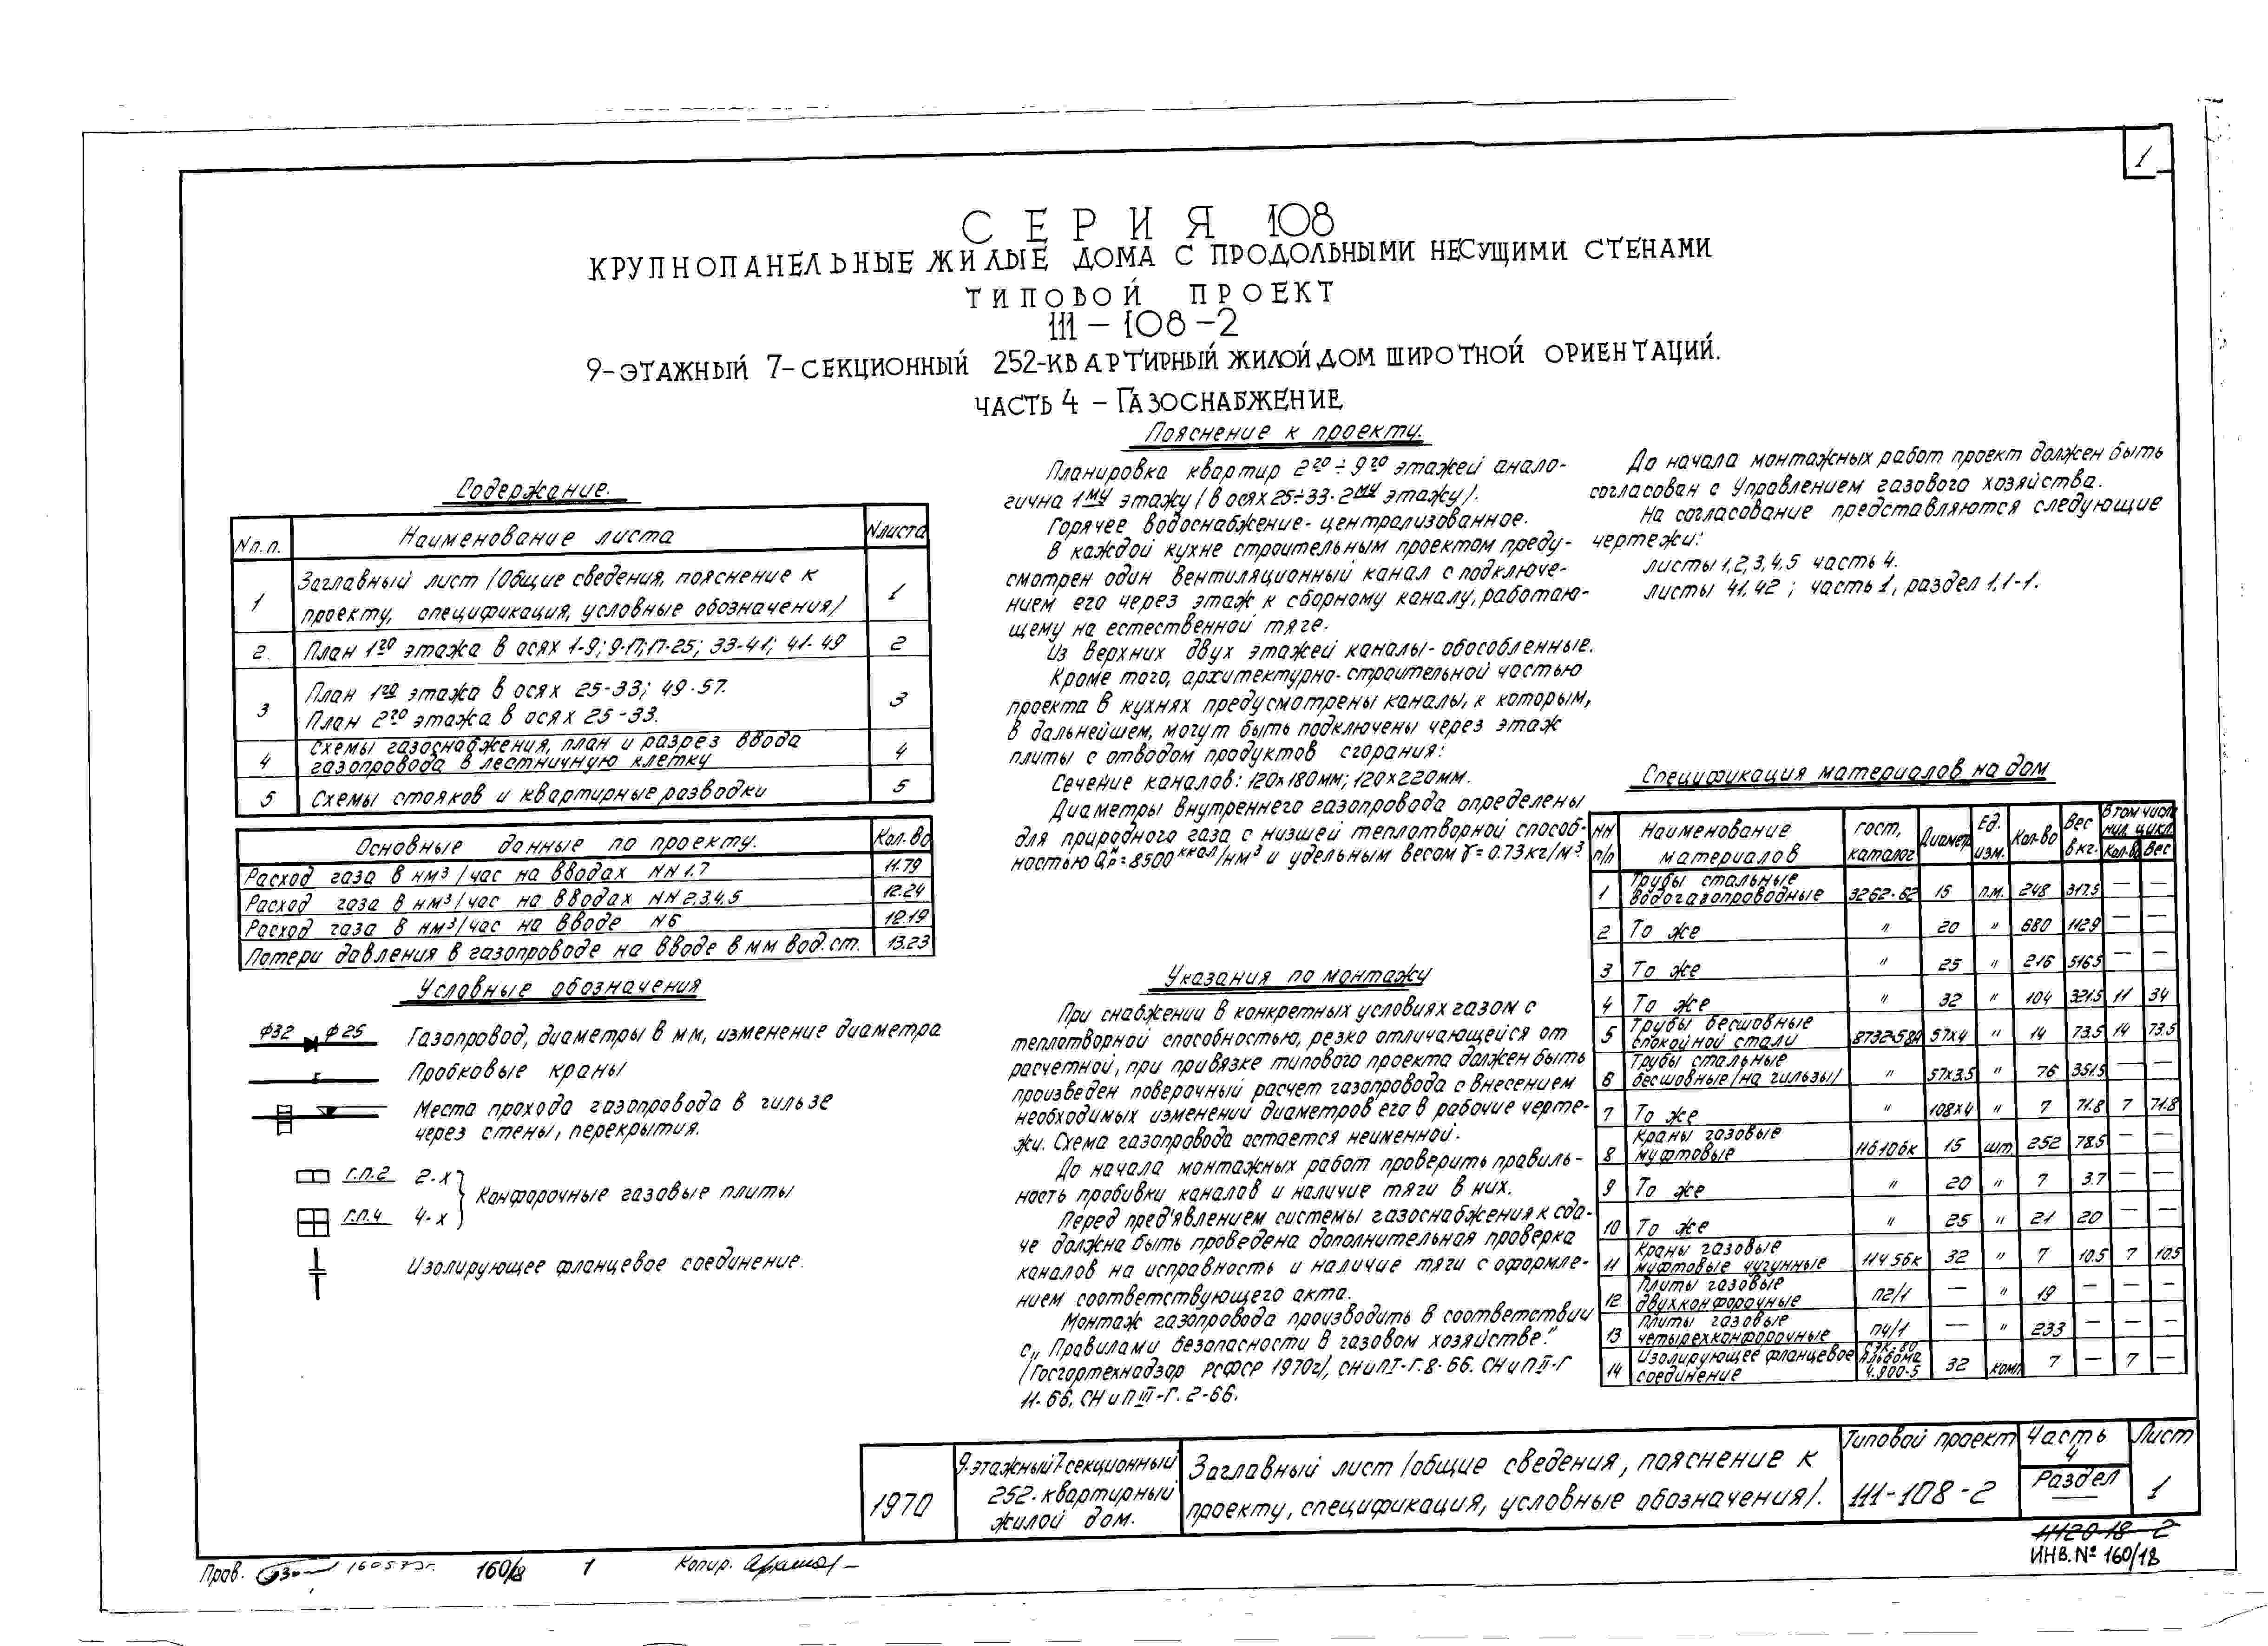 1
СЕРИЯ 108
КРУПНОПАНЕЛЬНЫЕ ЖИЛЫЕ ДОМА С ПРОДОЛЬНЫМИ НЕСУЩИМИ СТЕНАМИ
ТИПОВОЙ ПРОЕКТ
111-108-2
9-ЭТАЖНЫЙ 7-СЕКЦИОННЫЙ 252-КВАРТИРНЫЙ ЖИЛОЙ ДОМ ШИРОТНОЙ ОРИЕНТАЦИЙ.
ЧАСТЬ 4 - ГАЗОСНАБЖЕНИЕ
Содержание.
N п.п. Наименование листа N листа
1 Заглавный лист /Общие сведения, пояснение к
проекту, спецификация, условные обозначения/ 1
2. План 1го этажа в осях 1-9; 9-17; 17-25; 33-41; 41-49 2
3 План 1го этажа в осях 25-33; 49-57.
План 2го этажа в осях 25-33. 3
4 Схемы газоснабжения, план и разрез ввода
газопровода в лестничную клетку 4
5 Схемы стояков и квартирные разводки 5
Основные данные по проекту. Кол-во
Расход газа в нм³/час на вводах NN 1,7 11.79
Расход газа в нм³/час на вводах NN 2,3,4,5 12.24
Расход газа в нм³/час на вводе N6 12.19
Потери давления в газопроводе на вводе в мм вод.ст. 13.23
Условные обозначения
Ф32 Ф25 Газопровод, диаметры в мм, изменение диаметра
Пробковые краны
Места прохода газопровода в гильзе
через стены, перекрытия.
г.п.2 2-х
Конфорочные газовые плиты
г.п.4 4-х
Изолирующее фланцевое соединение.
Пояснение к проекту.
Планировка квартир 2го ÷ 9го этажей анало-
гична 1му этажу /в осях 25÷33-2му этажу/.
Горячее водоснабжение- централизованное.
В каждой кухне строительным проектом преду-
смотрен один вентиляционный канал с подключе-
нием его через этаж к сборному каналу, работаю-
щему на естественной тяге.
Из верхних двух этажей каналы- обособленные.
Кроме того, архитектурно-строительной частью
проекта в кухнях предусмотрены каналы, к которым,
в дальнейшем, могут быть подключены через этаж
плиты с отводом продуктов сгорания:
Сечение каналов: 120×180мм; 120×220мм.
Диаметры внутреннего газопровода определены
для природного газа с низшей теплотворной способ-
ностью Qнр=8500 ккал/нм³ и удельным весом γ=0.73кг/м³.
Указания по монтажу
При снабжении в конкретных условиях газом с
теплотворной способностью, резко отличающейся от
расчетной, при привязке типового проекта должен быть
произведен поверочный расчет газопровода с внесением
необходимых изменений диаметров его в рабочие черте-
жи. Схема газопровода остается неименной.
До начала монтажных работ проверить правиль-
ность пробивки каналов и наличие тяги в них.
Перед пред'явлением системы газоснабжения к сда-
че должна быть проведена дополнительная проверка
каналов на исправность и наличие тяги с оформле-
нием соответствующего акта.
Монтаж газопровода производить в соответствии
с „Правилами безопасности в газовом хозяйстве."
/Госгортехнадзор РСФСР 1970г/, СНиП I-Г.8-66. СНиП II-Г
11-66. СНиП III-Г. 2-66.
До начала монтажных работ проект должен быть
согласован с Управлением газового хозяйства.
На согласование представляются следующие
чертежи:
листы 1,2,3,4,5 часть 4.
листы 41,42; часть 1, раздел 1.1-1.
Спецификация материалов на дом
NN п/п Наименование материалов гост, каталог Диаметр Ед. изм. Кол-во Вес в кг. В том числе нул. цикл Кол-во Вес
1 Трубы стальные водогазопроводные 3262-62 15 п.м. 248 317.5 — —
2 То же " 20 " 680 1129 — —
3 То же " 25 " 216 516.5 — —
4 То же " 32 " 104 321.5 11 34
5 Трубы бесшовные спокойной стали 8732-58А 57×4 " 14 73.5 14 73.5
6 Трубы стальные бесшовные /на гильзы/ " 57×3.5 " 76 351.5 — —
7 То же " 108×4 " 7 71.8 7 71.8
8 Краны газовые муфтовые 11б10бк 15 шт. 252 78.5 — —
9 То же " 20 " 7 3.7 — —
10 То же " 25 " 21 20 — —
11 Краны газовые муфтовые чугунные 11ч5бк 32 " 7 10.5 7 10.5
12 Плиты газовые двухконфорочные П2/1 — " 19 — — —
13 Плиты газовые четырехконфорочные П4/1 — " 233 — — —
14 Изолирующее фланцевое соединение альбома 4.900-5 32 комп. 7 — 7 —
1970
9-этажный 7-секционный
252-квартирный
жилой дом.
Заглавный лист /общие сведения, пояснение к
проекту, спецификация, условные обозначения/.
Типовой проект
111-108-2
Часть
4
Раздел
—
Лист
1
Прав. 160573г. 160/18 1 Копир.
11120-18 2
ИНВ. № 160/18